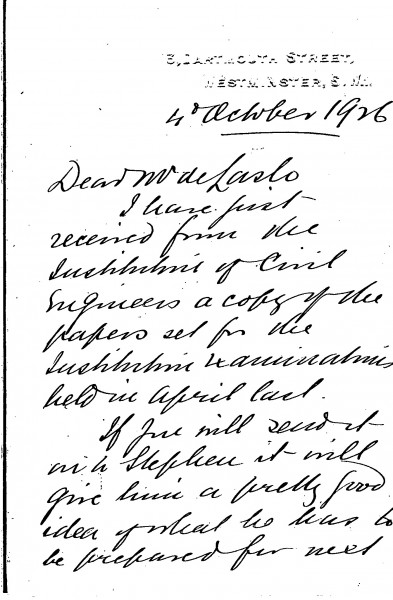 3, DARTMOUTH STREET,
WESTMINSTER, S.W.
4th October 1926
Dear Mr de Laslo
I have just
received from the
Institution of Civil
Engineers a copy of the
papers set for the
Institution Examinations
held in April last.
If you will send it
on to Stephen it will
give him a pretty good
idea of what he has to
be prepared for next